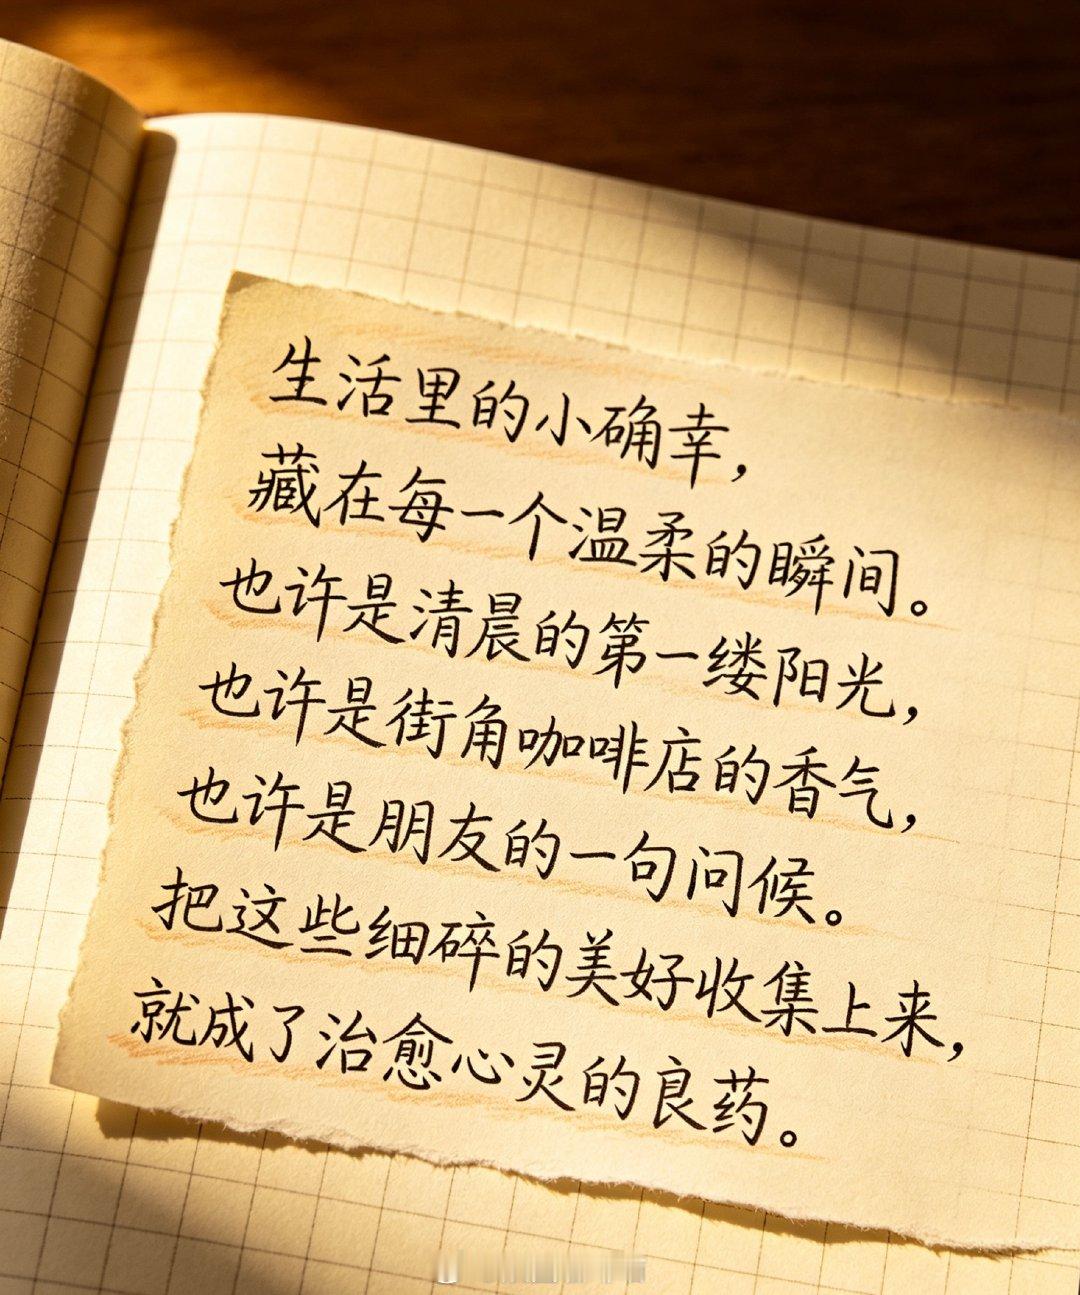 生活里的小确幸，
藏在每一个温柔的瞬间。
也许是清晨的第一缕阳光，
也许是街角咖啡店的香气，
也许是朋友的一句问候。
把这些细碎的美好收集上来，
就成了治愈心灵的良药。